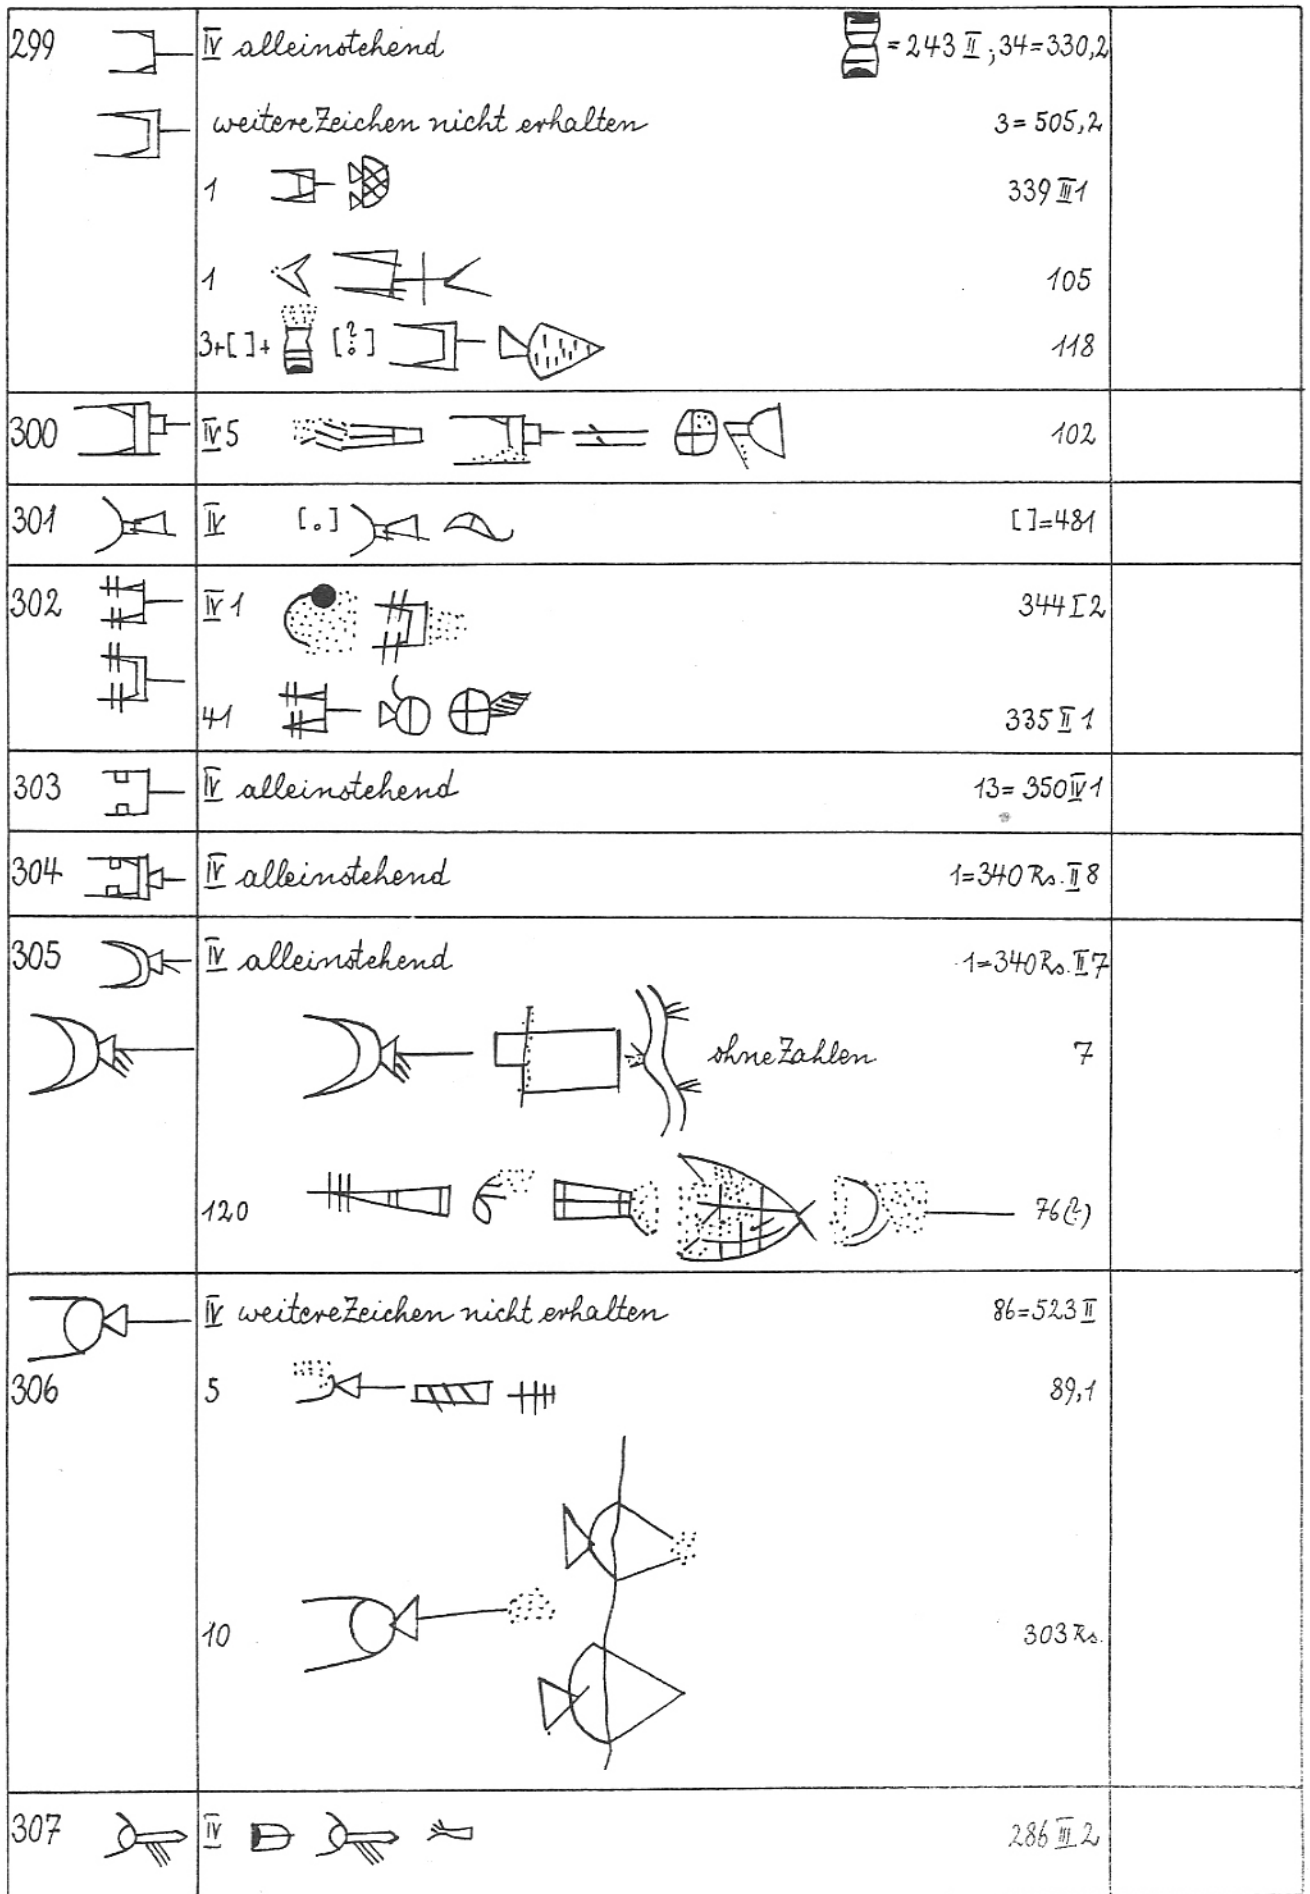 299 IV alleinstehend = 243 II ; 34 = 330,2
weitere Zeichen nicht erhalten 3 = 505,2
1 339 III 1
1 105
3+[ ]+ [?] 118
300 IV 5 102
301 IV [.] [ ]=481
302 IV 1 344 I 2
41 335 II 1
303 IV alleinstehend 13 = 350 IV 1
304 IV alleinstehend 1=340 Rs. II 8
305 IV alleinstehend 1=340 Rs. II 7
ohne Zahlen 7
120 76(?)
IV weitere Zeichen nicht erhalten 86=523 II
306 5 89,1
10 303 Rs.
307 IV 286 III 2